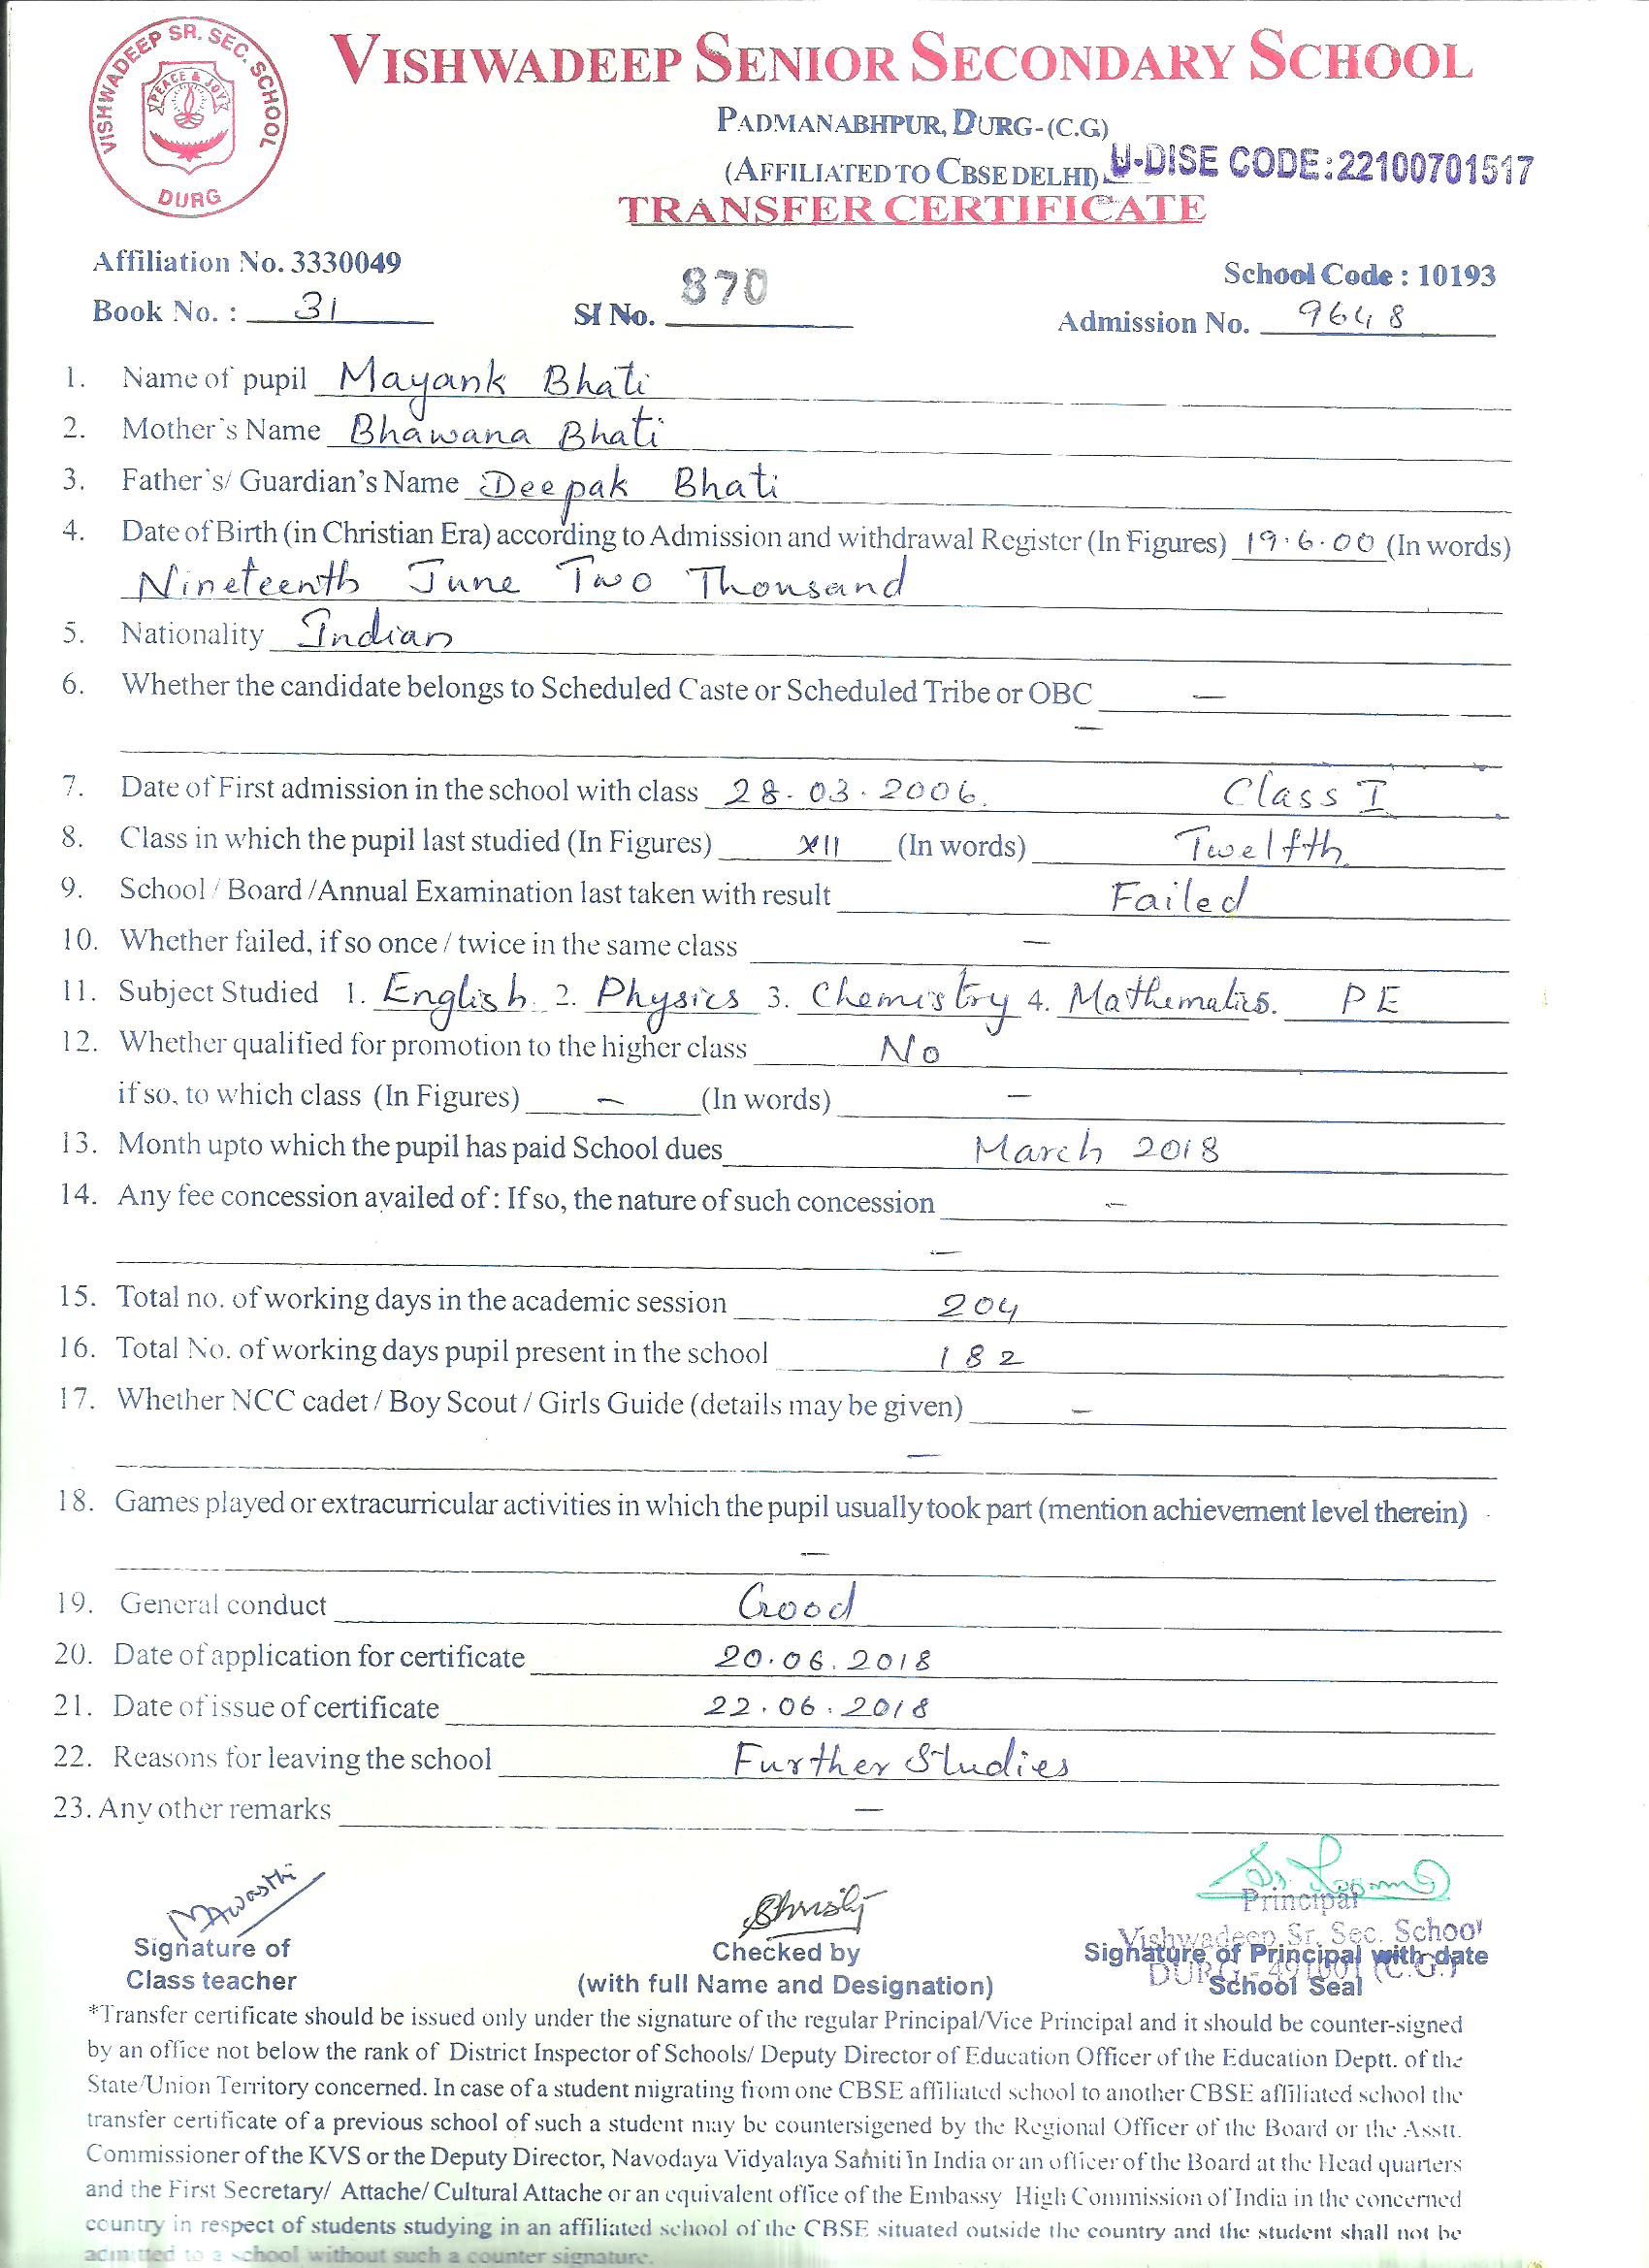 VISHWADEEP SR. SEC. SCHOOL
PEACE & JOY
DURG
VISHWADEEP SENIOR SECONDARY SCHOOL
PADMANABHPUR, DURG-(C.G)
(AFFILIATED TO CBSE DELHI) U-DISE CODE:22100701517
TRANSFER CERTIFICATE
Affiliation No. 3330049
School Code : 10193
Book No. : 31 Sl No. 870 Admission No. 9648
1. Name of pupil Mayank Bhati
2. Mother's Name Bhawana Bhati
3. Father's/ Guardian's Name Deepak Bhati
4. Date of Birth (in Christian Era) according to Admission and withdrawal Register (In Figures) 19.6.00 (In words)
Nineteenth June Two Thousand
5. Nationality Indian
6. Whether the candidate belongs to Scheduled Caste or Scheduled Tribe or OBC —
—
7. Date of First admission in the school with class 28.03.2006. Class I
8. Class in which the pupil last studied (In Figures) XII (In words) Twelfth
9. School / Board /Annual Examination last taken with result Failed
10. Whether failed, if so once / twice in the same class —
11. Subject Studied 1. English. 2. Physics 3. Chemistry 4. Mathematics. PE
12. Whether qualified for promotion to the higher class No
if so, to which class (In Figures) — (In words) —
13. Month upto which the pupil has paid School dues March 2018
14. Any fee concession availed of : If so, the nature of such concession —
—
15. Total no. of working days in the academic session 204
16. Total No. of working days pupil present in the school 182
17. Whether NCC cadet / Boy Scout / Girls Guide (details may be given) —
—
18. Games played or extracurricular activities in which the pupil usually took part (mention achievement level therein)
—
19. General conduct Good
20. Date of application for certificate 20.06.2018
21. Date of issue of certificate 22.06.2018
22. Reasons for leaving the school Further Studies
23. Any other remarks —
Principal
Vishwadeep Sr. Sec. School
DURG - 491001 (C.G.)
Signature of Class teacher
Checked by
(with full Name and Designation)
Signature of Principal with date
School Seal
*Transfer certificate should be issued only under the signature of the regular Principal/Vice Principal and it should be counter-signed
by an office not below the rank of District Inspector of Schools/ Deputy Director of Education Officer of the Education Deptt. of the
State/Union Territory concerned. In case of a student migrating from one CBSE affiliated school to another CBSE affiliated school the
transfer certificate of a previous school of such a student may be countersigened by the Regional Officer of the Board or the Asstt.
Commissioner of the KVS or the Deputy Director, Navodaya Vidyalaya Samiti in India or an officer of the Board at the Head quarters
and the First Secretary/ Attache/ Cultural Attache or an equivalent office of the Embassy High Commission of India in the concerned
country in respect of students studying in an affiliated school of the CBSE situated outside the country and the student shall not be
admitted to a school without such a counter signature.